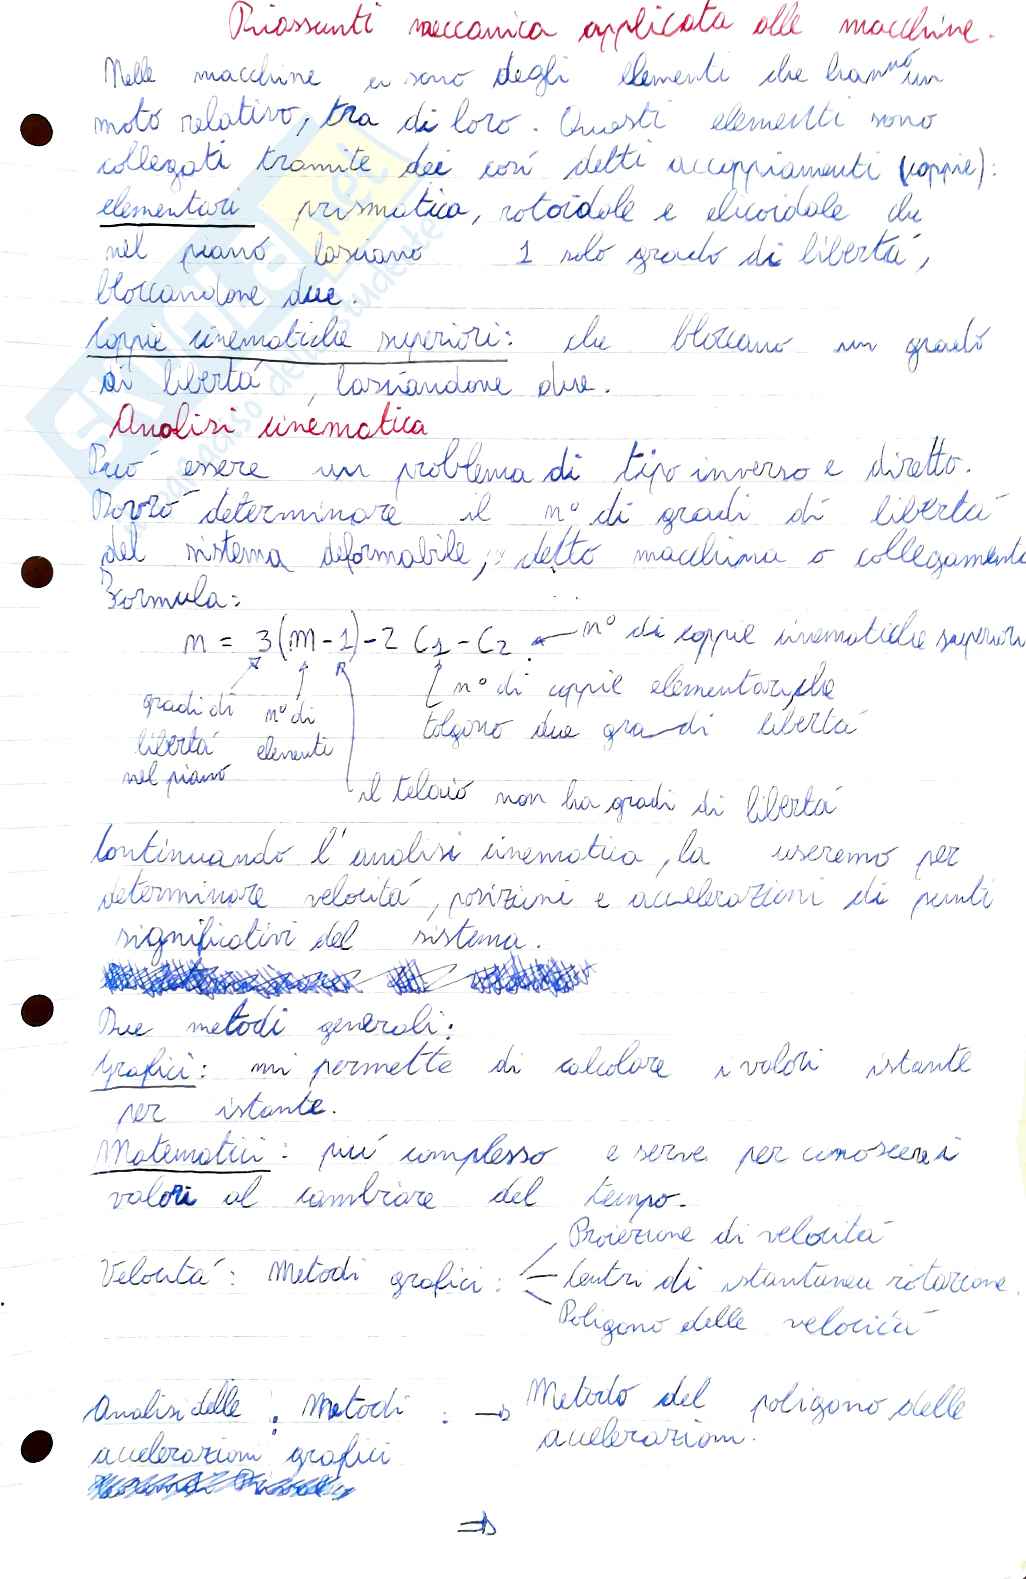 Riassunti meccanica applicata alle macchine.
Nelle macchine ci sono degli elementi che hanno un
moto relativo, tra di loro. Questi elementi sono
collegati tramite dei così detti accoppiamenti (coppie):
elementari prismatica, rotoidale e elicoidale che
nel piano lasciano 1 solo grado di libertà,
bloccandone due.
Coppie cinematiche superiori: che bloccano un grado
di libertà, lasciandone due.
Analisi cinematica
Può essere un problema di tipo inverso e diretto.
Dovrò determinare il n° di gradi di libertà
del sistema deformabile, detto macchina o collegamento
Formula:
n = 3(m-1)-2 C1 - C2 n° di coppie cinematiche superiori
n° di coppie elementari, che
tolgono due gradi libertà
gradi di libertà nel piano
n° di elementi
il telaio non ha gradi di libertà
Continuando l'analisi cinematica, la useremo per
determinare velocità, posizioni e accelerazioni di punti
significativi del sistema.
Due metodi generali:
Grafici: mi permette di calcolare i valori istante
per istante.
Matematici: più complesso e serve per conoscere i
valori al cambiare del tempo.
Velocità: Metodi grafici:
Proiezione di velocità
Centri di istantanea rotazione.
Poligono delle velocità
Analisi delle : Metodi : → Metodo del poligono delle
accelerazioni grafici accelerazioni.
⇒